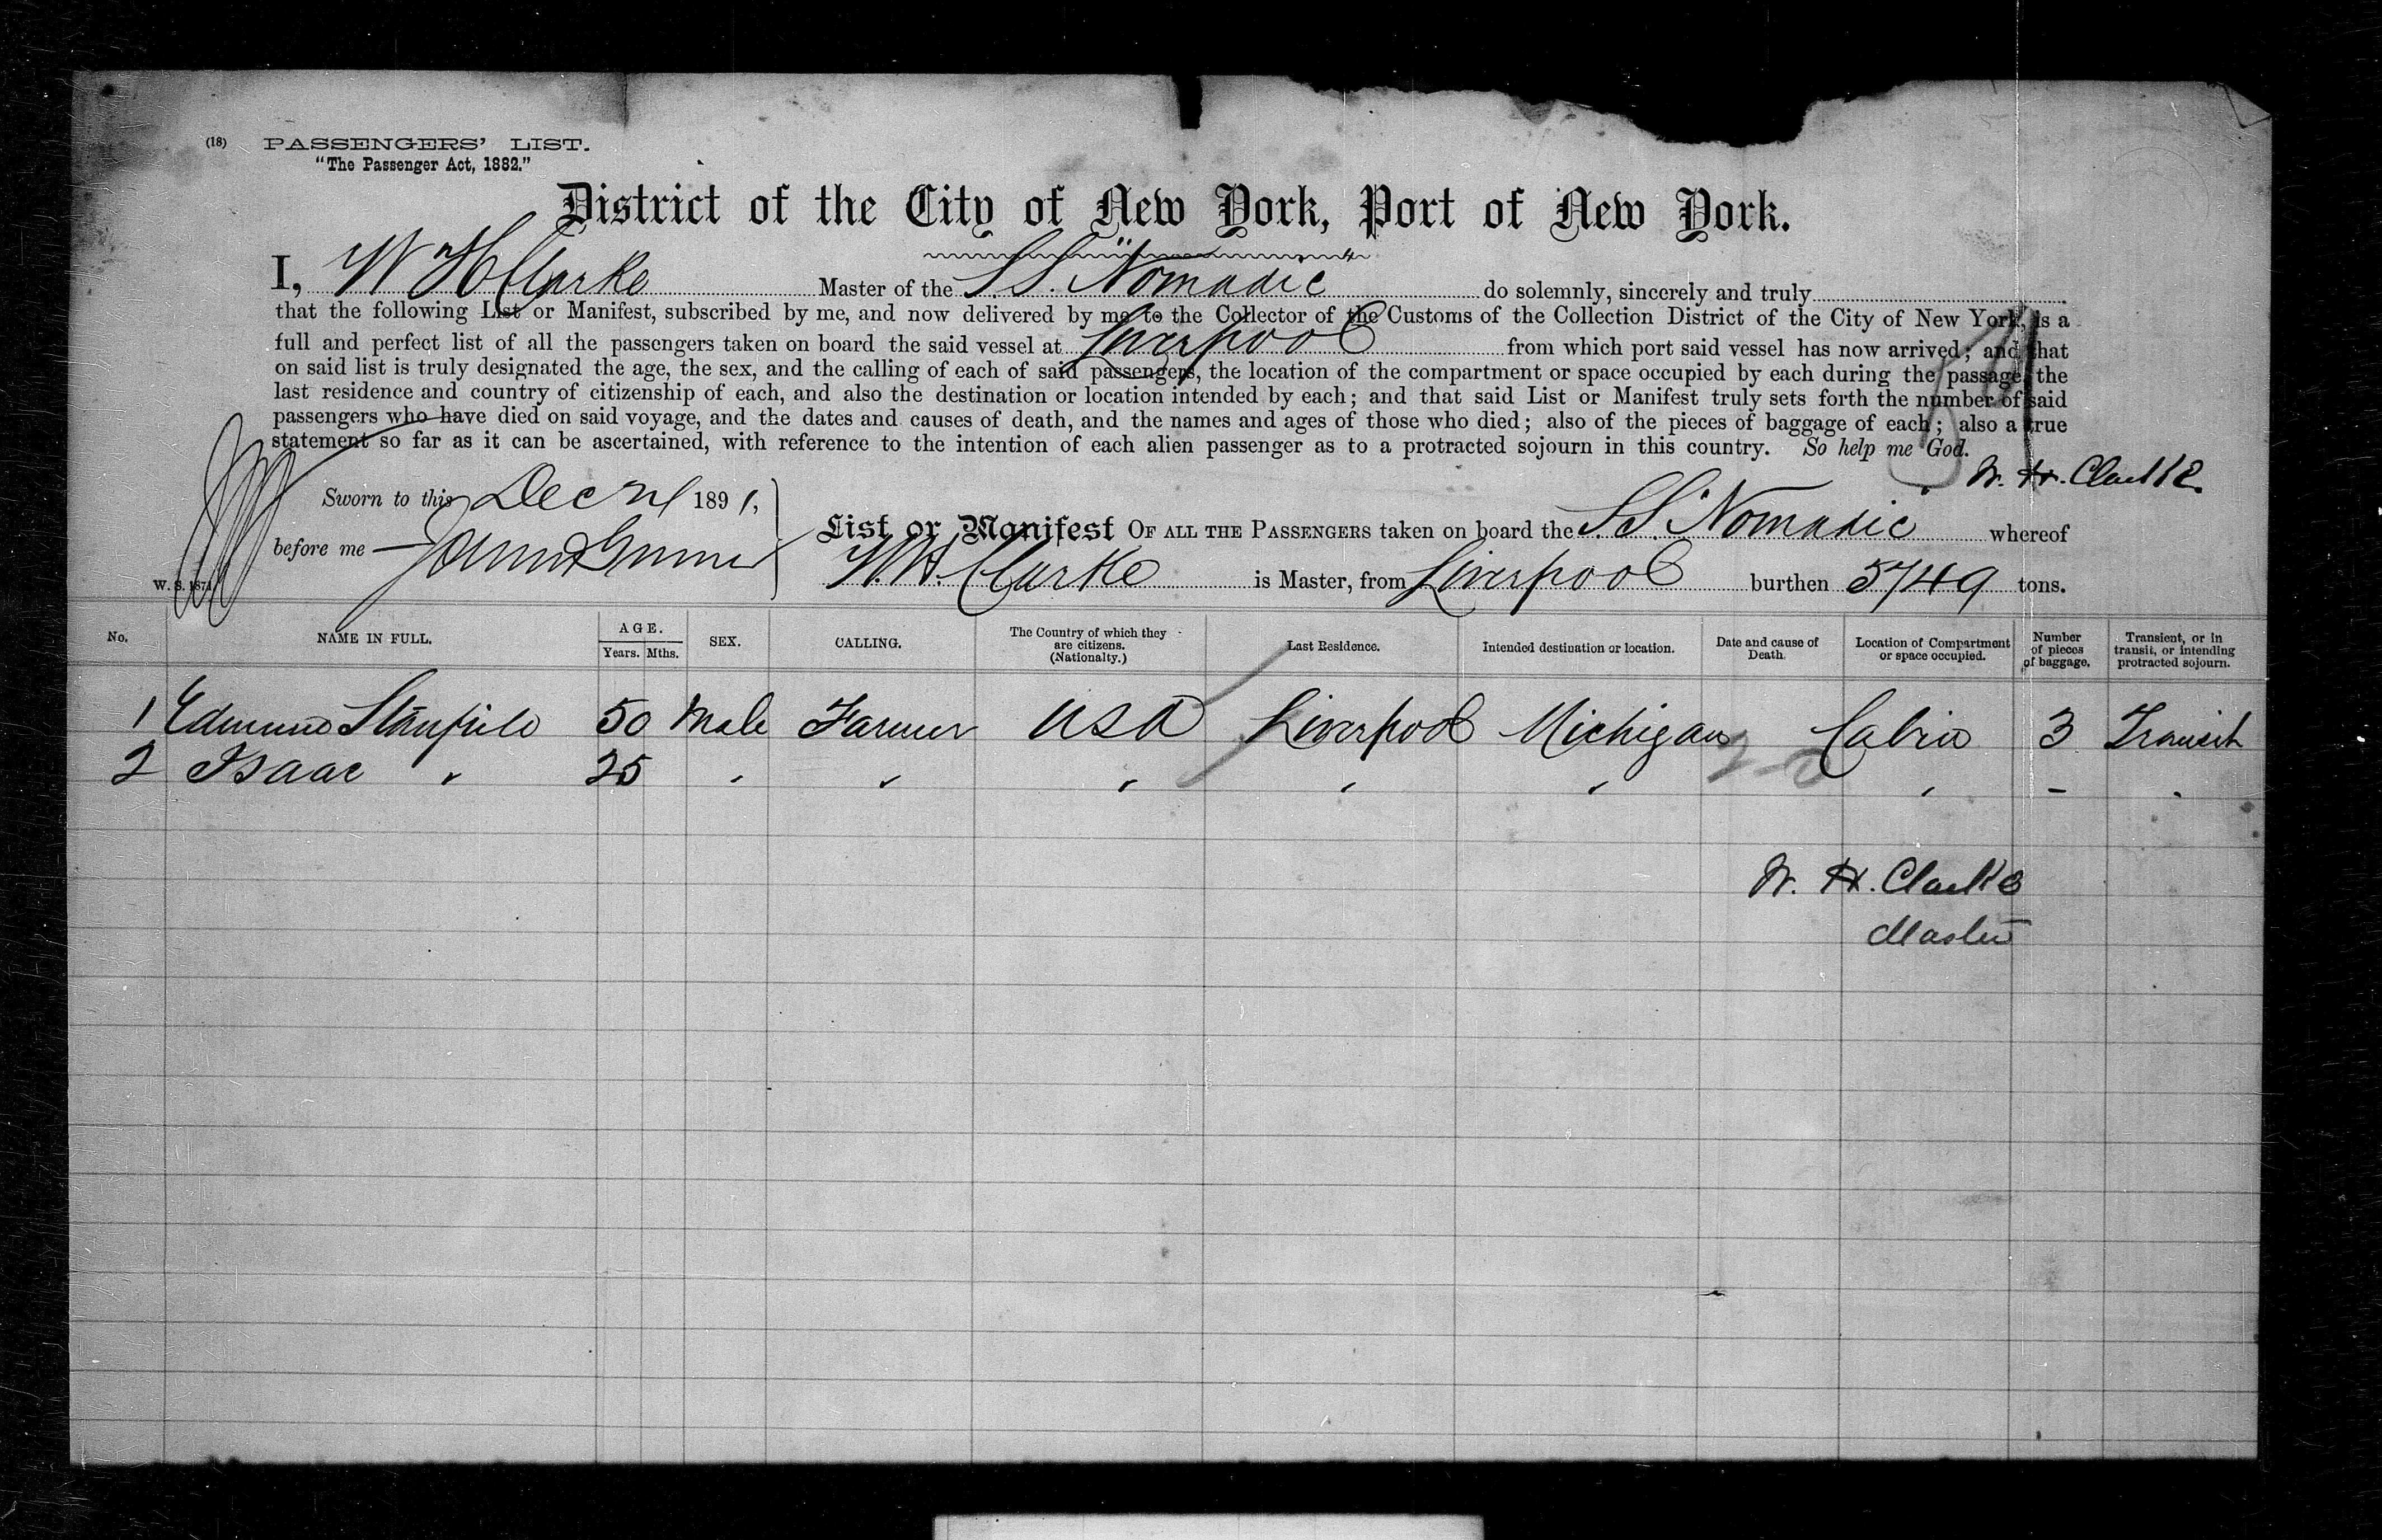 (18) PASSENGERS' LIST.
"The Passenger Act, 1882."
District of the City of New York, Port of New York.
I, W H Clarke Master of the S.S. "Nomadic" do solemnly, sincerely and truly
that the following List or Manifest, subscribed by me, and now delivered by me to the Collector of the Customs of the Collection District of the City of New York, is a
full and perfect list of all the passengers taken on board the said vessel at Liverpool from which port said vessel has now arrived; and that
on said list is truly designated the age, the sex, and the calling of each of said passengers, the location of the compartment or space occupied by each during the passage, the
last residence and country of citizenship of each, and also the destination or location intended by each; and that said List or Manifest truly sets forth the number of said
passengers who have died on said voyage, and the dates and causes of death, and the names and ages of those who died; also of the pieces of baggage of each; also a true
statement so far as it can be ascertained, with reference to the intention of each alien passenger as to a protracted sojourn in this country. So help me God.
W. H. Clarke
Sworn to this Dec 1891,
before me
W. S. 1871
List or Manifest OF ALL THE PASSENGERS taken on board the S.S. Nomadic whereof
W. H. Clarke is Master, from Liverpool burthen 5749 tons.
No. NAME IN FULL. AGE. Years. Mths. SEX. CALLING. The Country of which they are citizens. (Nationalty.) Last Residence. Intended destination or location. Date and cause of Death. Location of Compartment or space occupied. Number of pieces of baggage. Transient, or in transit, or intending protracted sojourn.
1 Edmund Stanfield 50 Male Farmer USA Liverpool Michigan Cabin 3 Transit
2 Isaac " 25 " " " " " " - "
W. H. Clarke
Master